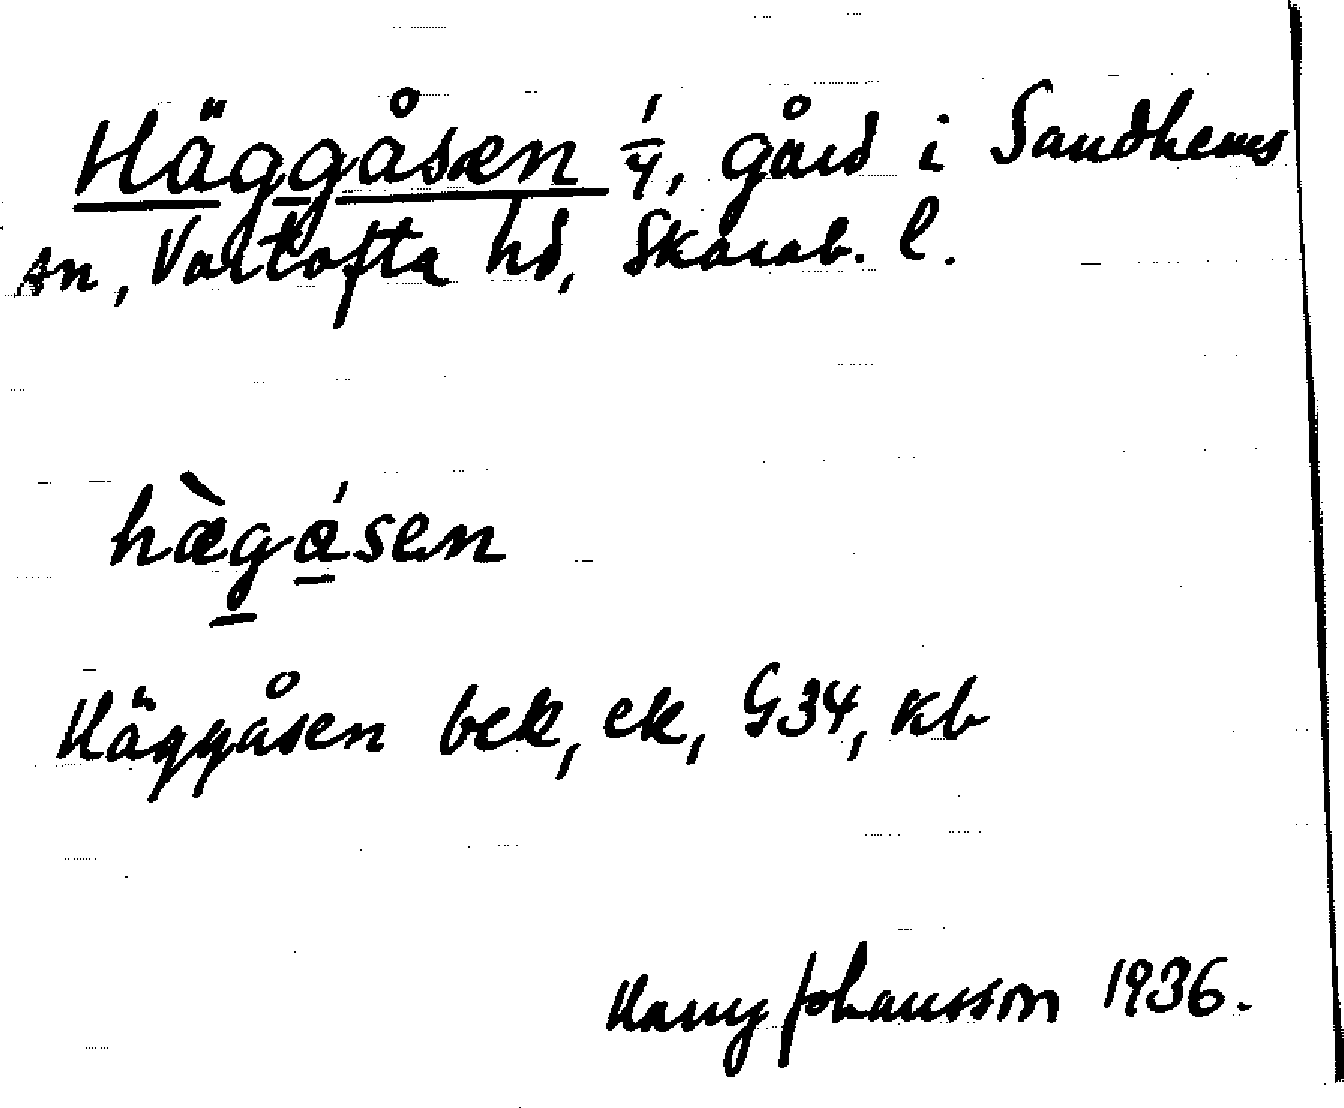 Häggåsen 1/4, gård i Sandhems
sn, Vartofta hd, Skarab. l.
hæ̀gǻsen
Häggåsen bek, ek, G34, kb
Harry Johansson 1936.